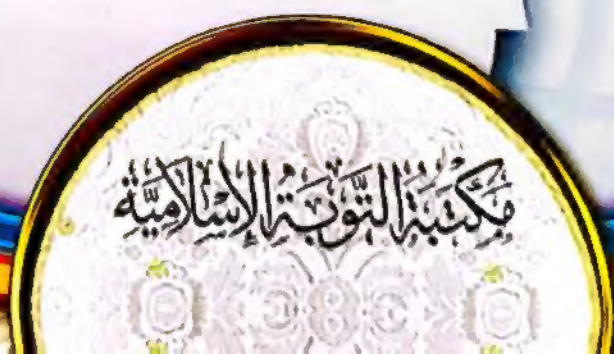 مَكْتَبَةُ التَّوْبَةِ الإِسْلَامِيَّةِ